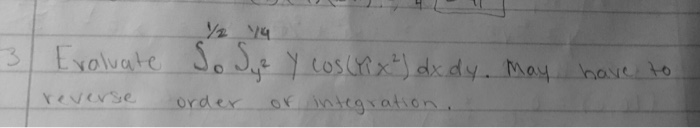 3 Evaluate ∫₀^{1/2} ∫_{y²}^{1/4} y cos(πx²) dx dy. May have to
reverse order of integration.